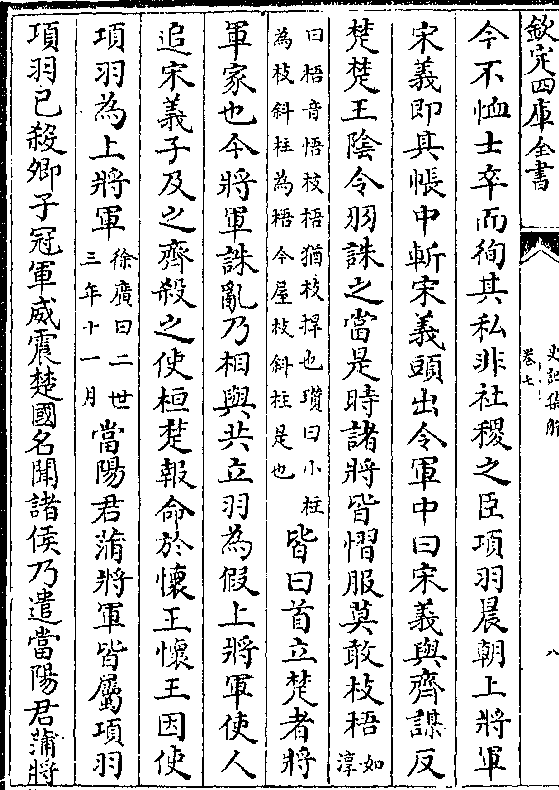 欽定四庫全書
史記集解
卷七
八
今不恤士卒而徇其私非社稷之臣項羽晨朝上將軍
宋義即其帳中斬宋義頭出令軍中曰宋義與齊謀反
楚楚王陰令羽誅之當是時諸將皆慴服莫敢枝梧如淳
曰梧音悟枝梧猶枝捍也瓚曰小柱
為枝斜柱為梧今屋枝斜柱是也
皆曰首立楚者將
軍家也今將軍誅亂乃相與共立羽為假上將軍使人
追宋義子及之齊殺之使桓楚報命於懷王懷王因使
項羽為上將軍
徐廣曰二世
三年十一月
當陽君蒲將軍皆屬項羽
項羽已殺卿子冠軍威震楚國名聞諸侯乃遣當陽君蒲將